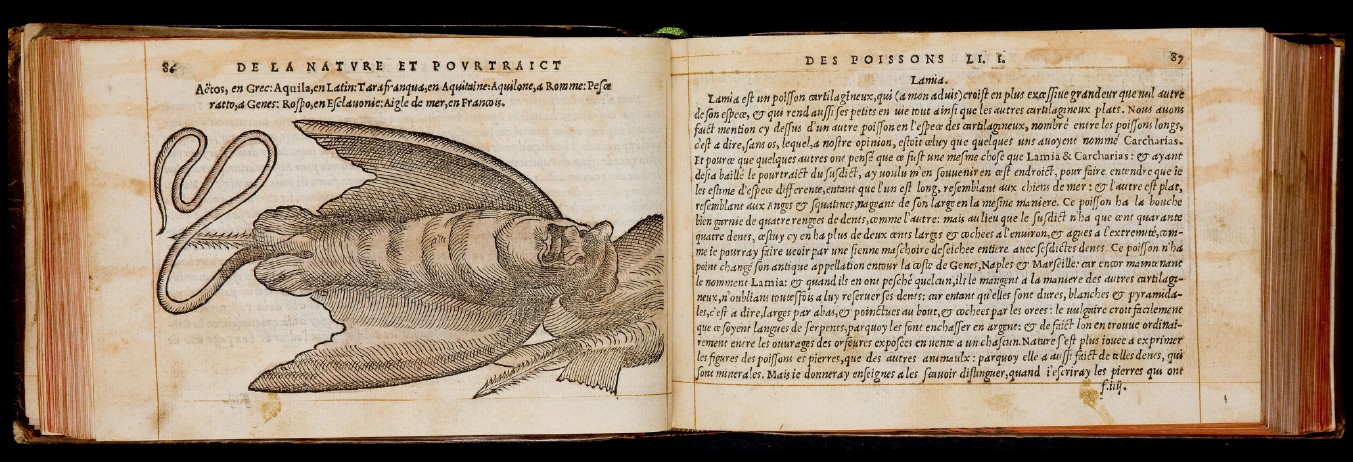 86
DE LA NATVRE ET POVRTRAICT
Aëtos, en Grec: Aquila, en Latin: Tarafranqua, en Aquitaine: Aquilone, a Romme: Pesce
ratto, a Genes: Rospo, en Esclauonie: Aigle de mer, en Francois.
DES POISSONS LI. I.
87
Lamia.
Lamia est un poisson cartilagineux, qui (a mon aduis) croist en plus excessiue grandeur que nul autre
de son espece, & qui rend aussi ses petits en uie tout ainsi que les autres cartilagineux plats. Nous auons
faict mention cy dessus d'un autre poisson en l'espece des cartilagineux, nombré entre les poissons longs,
c'est a dire, sans os, lequel, a nostre opinion, estoit celuy que quelques uns auoyent nommé Carcharias.
Et pource que quelques autres ont pensé que ce fust une mesme chose que Lamia & Carcharias: & ayant
desia baillé le pourtraict du susdict, ay uoulu m'en souuenir en cest endroict, pour faire entendre que ie
les estime d'espece differente, entant que l'un est long, resemblant aux chiens de mer: & l'autre est plat,
resemblant aux Anges & squatines, nageant de son large en la mesme maniere. Ce poisson ha la bouche
bien garnie de quatre rengees de dents, comme l'autre: mais au lieu que le susdict n'ha que cent quarante
quatre dents, cestuy cy en ha plus de deux cents larges & cochees a l'enuiron, & agues a l'extremité, com-
me ie pourray faire ueoir par une sienne maschoire deseichee entiere auec sesdictes dents. Ce poisson n'ha
point changé son antique appellation entour la coste de Genes, Naples & Marseille: car encor maintenant
le nomment Lamia: & quand ils en ont pesché quelcun, ils le mangent a la maniere des autres cartilagi-
neux, n'oublians toutesfois a luy reseruer ses dents: car entant qu'elles sont dures, blanches & pyramida-
les, c'est a dire, larges par abas, & poinctues au bout, & cochees par les orees: le uulgaire croit facilement
que ce soyent langues de serpents, parquoy les font enchasser en argent: & de faict lon en trouue ordinai-
rement entre les ouurages des orfeures exposees en uente a un chascun. Nature s'est plus iouee a exprimer
les figures des poissons es pierres, que des autres animaulx: parquoy elle a aussi faict de telles dents, qui
sont minerales. Mais ie donneray enseignes a les scauoir distinguer, quand i'escriray les pierres qui ont
f.iiij.